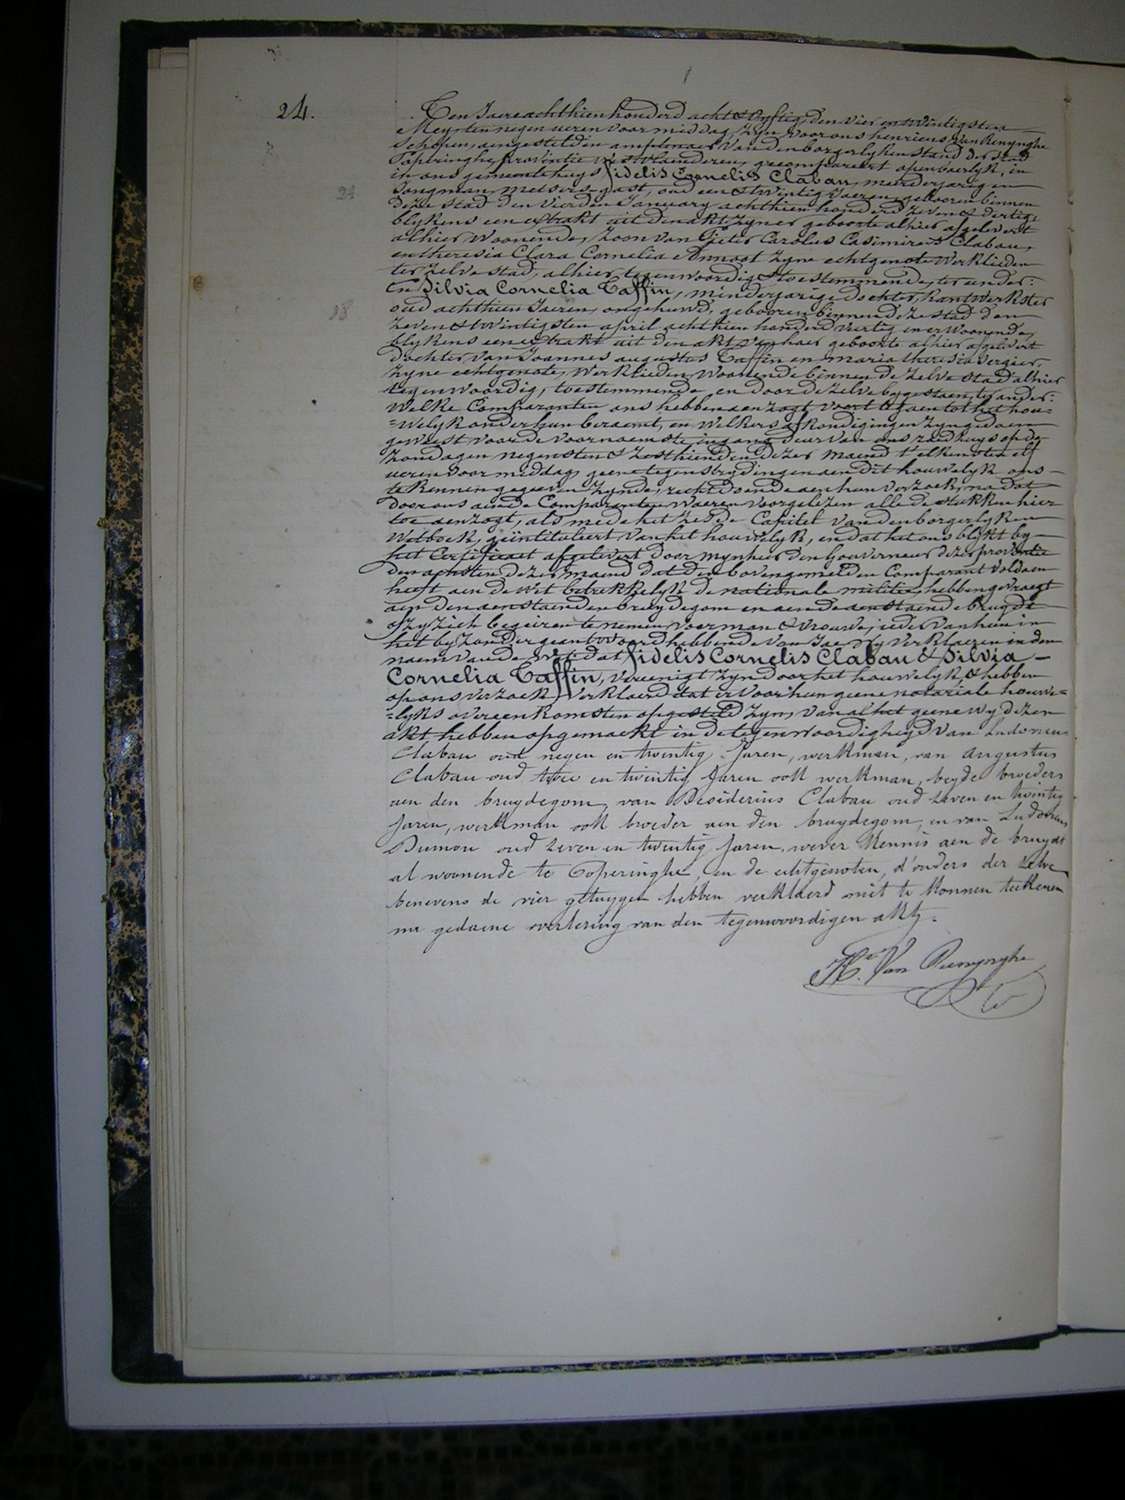 24.
Ten Jaere achthien honderd acht & vyftig, den vier en twintigsten
Mey, ten negen ueren voor middag, zyn voor ons henricus Van Renynghe
Schepen, aengesteld en amptenaer van den borgerlyken stand der stad
Poperinghe, provintie Westvlaenderen, gecompareert openbaerlyk, in
in ons gemeentehuys, fidelis Cornelis Clabau, minderjarigen
Jongman, metsers-gast, oud een & twintig Jaeren, gebooren binnen
24
deze stad den vierden January achthien honderd zeven & dertig,
blykens een extrakt uit den akt zyner geboorte alhier afgelevert
alhier Woonende, Zoon van Pieter Carolus Casimirus Clabau,
en theresia Clara Cornelia Monnoot zyne echtgenote Werklieden
ter zelve stad, alhier tegenwoordig & toestemmende, ter eender:
En Silvia Cornelia Taffin, minderjarige dochter, hantwerkster
18
oud achthien Jaeren, ongehuwd, gebooren binnen deze stad den
zeven & twintigsten april achthien honderd veertig en er woonende,
blykens een extrakt uit den akt van haer geboorte alhier afgelevert
dochter van Joannes augustus Taffin en maria theresia vergier,
zyne echtgenote, Werklieden, Woonende binnen de zelve stad alhier
tegenwoordig, toestemmende en door dezelve bygestaen, ter ander:
Welke Comparanten ons hebben aenzogt voort te gaen tot het hou=
=Welyk onder hun beraemt, en Welkers afkondigingen zyn gedaen
geweest voor de voornaemste ingang deur van ons raedhuys op de
Zondagen negensten & zesthienden dezer maend t'elkens ten elf
ueren voor middag, geene tegenstrydingen aen dit houwelyk ons
te Kenning gegeven zynde, recht doende aen hun verzoek, na dat
door ons aen de Comparanten waeren voorgelezen alle de stukken hier
toe aenzogt, als mede het zesde Capitel van den borgerlyken
Wetboek, geïntituleert van het houwelyk, en dat het ons blykt by
het Certificaet afgelevert door mynheer den gouverneur dezer provintie
den achsten dezer maend dat den bovengemelden Comparant voldaen
heeft aen de wet betrekkelyk de nationale militie, hebben gevraegt
aen den aenstaenden bruydegom en aen de aenstaende bruydt
of zy zich begeiren te nemen voor man & vrouwe, ieder van hun in
het byzonder geantwoord hebbende van Ja, Wy verklaeren in den
naem van de wet dat fidelis Cornelis Clabau & Silvia
Cornelia Taffin, vereenigt zyn door het houwelyk, & hebben
op ons verzoek, verklaerd dat er voor hun geene notariale houwe=
=lyks overeenkomsten opgesteld zyn, van al het geene wy dezen
akt hebben opgemaekt in de tegenwoordigheyd van Ludovicus
Clabau oud negen en twintig Jaren, werkman, van augustus
Clabau oud twee en twintig Jaren ook werkman, beyde broeders
aen den bruydegom, van Desiderius Clabau oud zeven en twintig
Jaren, werkman ook broeder aen den bruydegom, en van Ludovicus
Dumon oud zeven en twintig Jaren, wever Kennis aen de bruydt
al woonende te Poperinghe, en de echtgenoten, d'ouders der zelve
benevens de vier getuygen hebben verklaerd niet te konnen teekenen
na gedaene voorlezing van den tegenwoordigen akt.
Hri Van Renynghe